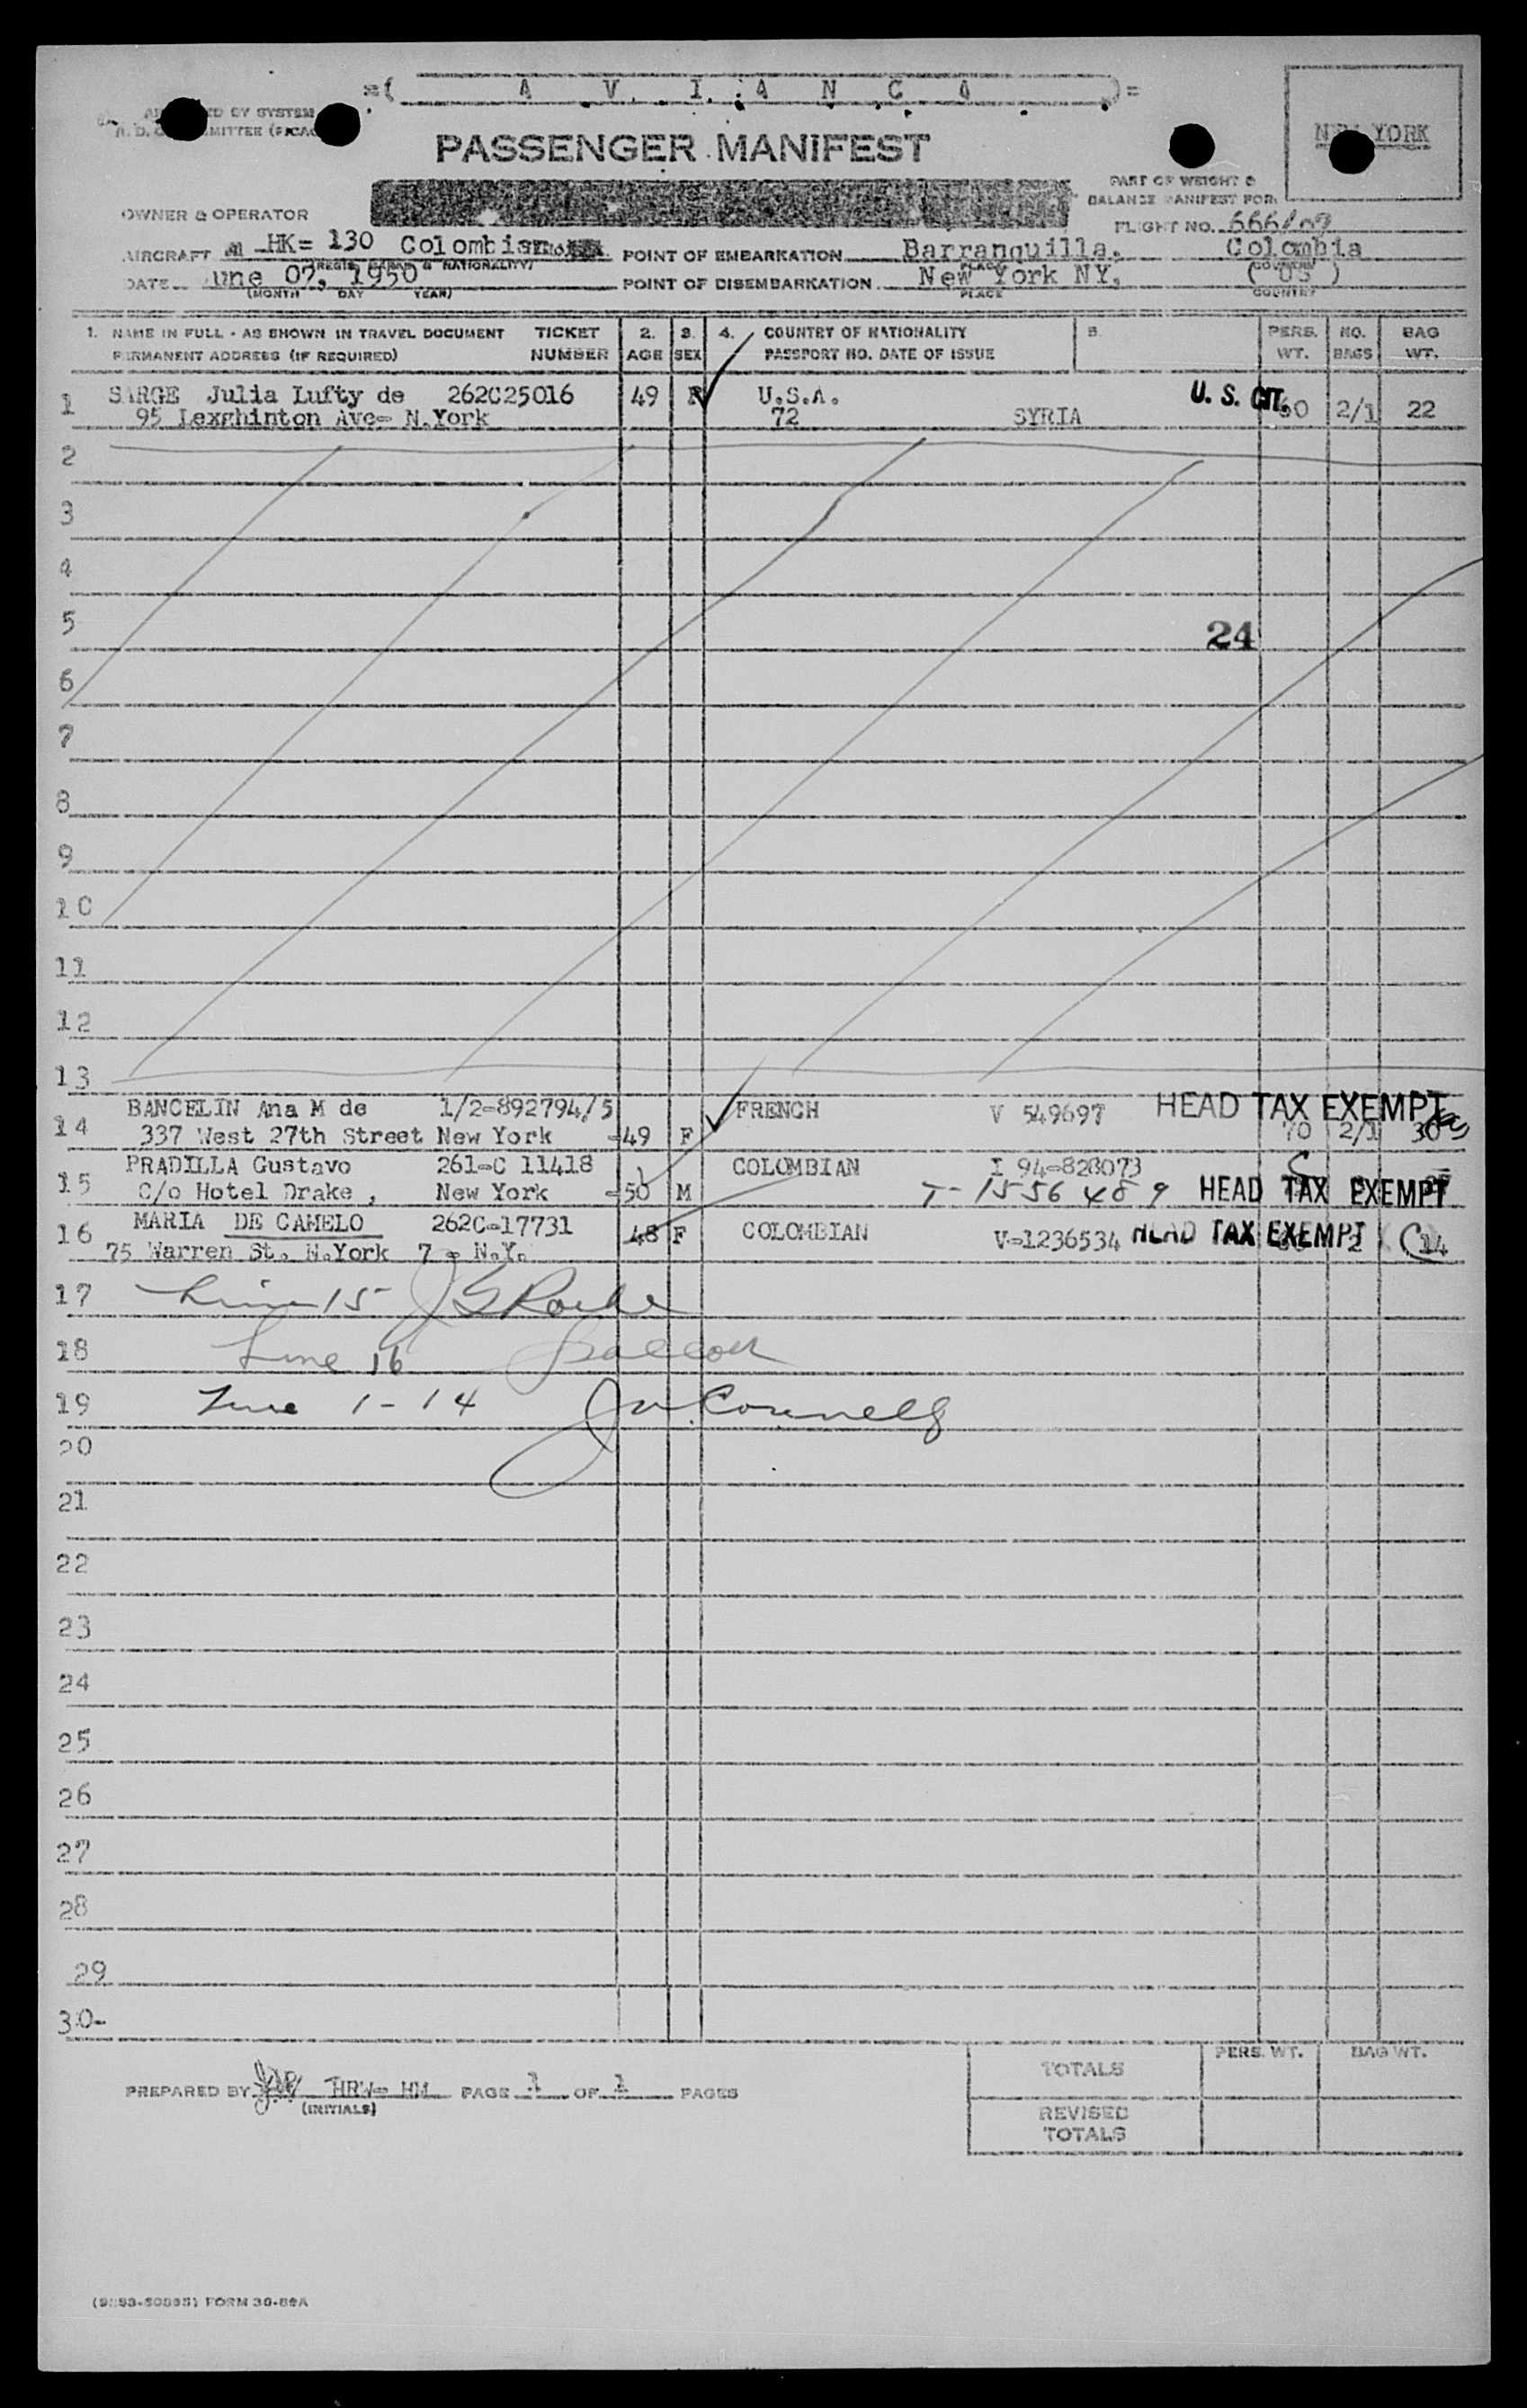 =( A V. I. A N C A )=
PASSENGER MANIFEST
NEW YORK
PART OF WEIGHT &
BALANCE MANIFEST FOR:
OWNER & OPERATOR
FLIGHT NO.
AIRCRAFT HK= 130 Colombian POINT OF EMBARKATION Barranquilla. Colombia
DATE une 07, 1950 POINT OF DISEMBARKATION New York NY. ( US )
(MONTH DAY YEAR) PLACE COUNTRY
1. NAME IN FULL - AS SHOWN IN TRAVEL DOCUMENT TICKET 2. 3. 4. COUNTRY OF NATIONALITY 5. PERS. NO. BAG
PERMANENT ADDRESS (IF REQUIRED) NUMBER AGE SEX PASSPORT NO. DATE OF ISSUE WT. BAGS WT.
1 SARGE Julia Lufty de 262C25016 49 F U.S.A. U. S. CIT. 2/1 22
95 Lexghinton Ave= N.York 72 SYRIA
2
3
4
5 24
6
7
8
9
10
11
12
13
14 BANCELIN Ana M de 1/2=892794/5 FRENCH V 549697 HEAD TAX EXEMPT
337 West 27th Street New York =49 F 70 2/1 30
15 PRADILLA Gustavo 261=C 11418 COLOMBIAN I 94=828073
C/o Hotel Drake , New York =50 M T- 1556489 HEAD TAX EXEMPT
16 MARIA DE CAMELO 262C=17731 48 F COLOMBIAN V=1236534 HEAD TAX EXEMPT 2 14
75 Warren St. N.York 7 = N.Y.
17 Line 15
18 Line 16
19 Line 1-14
20
21
22
23
24
25
26
27
28
29
30-
PERS. WT. BAG WT.
TOTALS
PREPARED BY HRW= HM PAGE 1 OF 1 PAGES
(INITIALS)
REVISED
TOTALS
FORM 30-89A